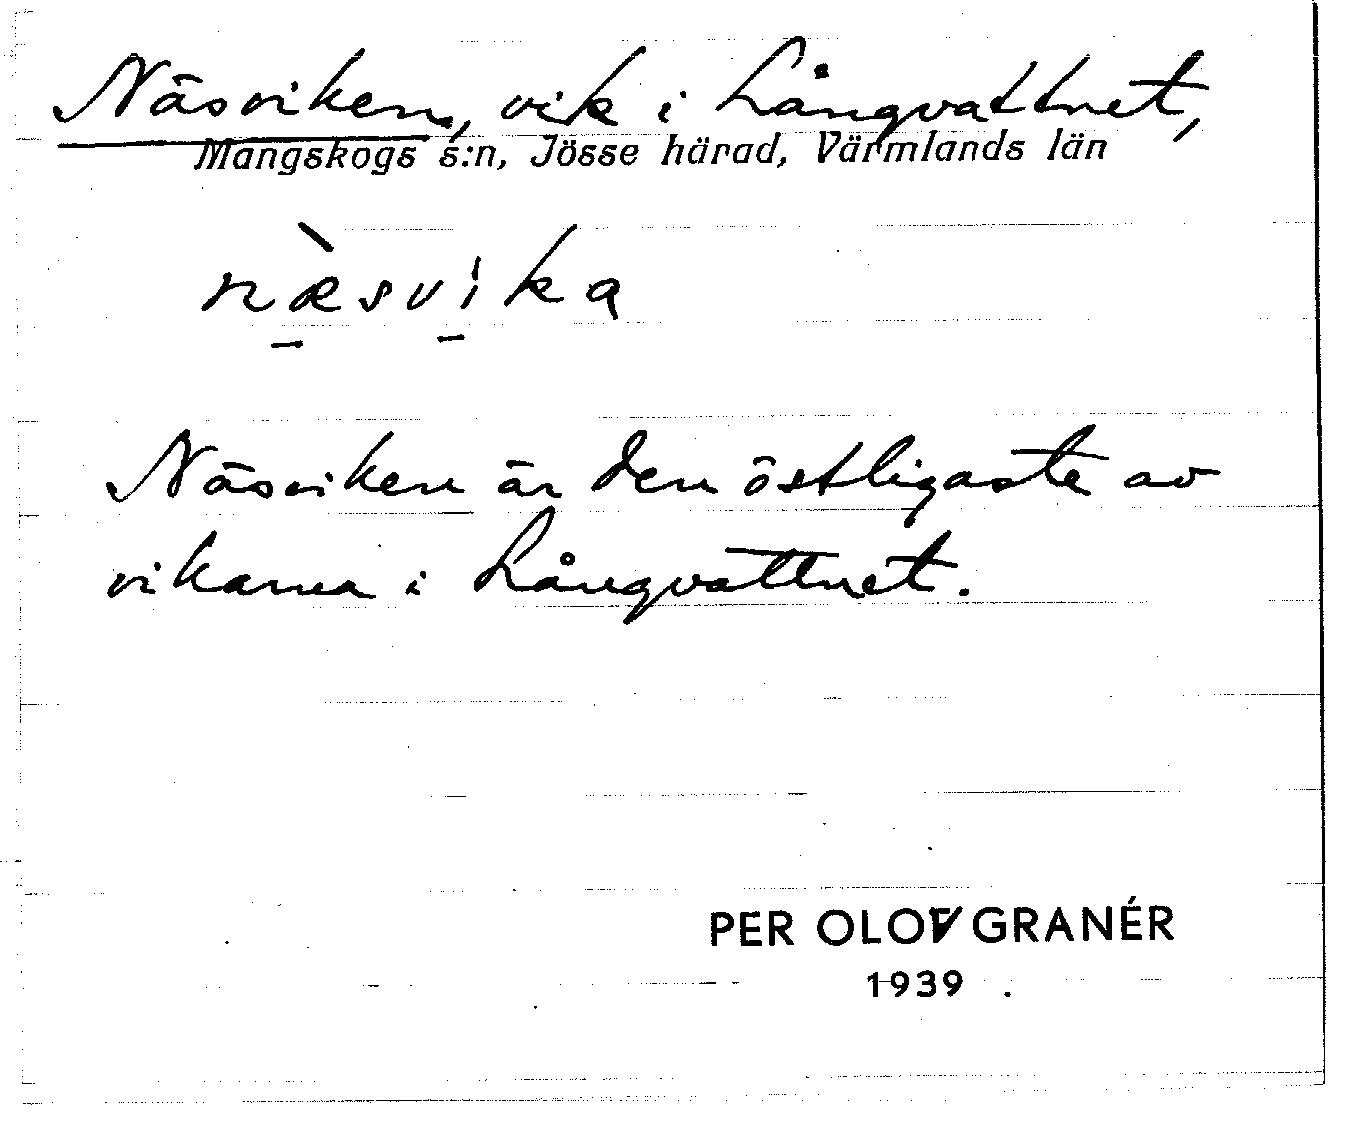 Näsviken, vik i Långvattnet,
Mangskogs s:n, Jösse härad, Värmlands län
næ̀svika
Näsviken är den östligaste av
vikarna i Långvattnet.
PER OLOV GRANÉR
1939 .